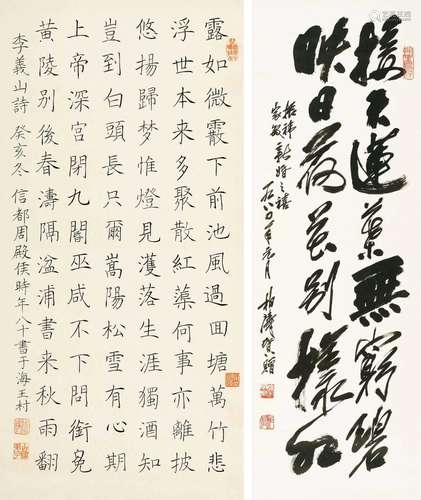 接天蓮葉無窮碧
映日荷花別樣紅
新婚之禧
一九八〇年元月
賀贈
露如微霰下前池風過回塘萬竹悲
浮世本來多聚散紅蕖何事亦離披
悠揚歸梦惟燈見濩落生涯獨酒知
豈到白頭長只爾嵩陽松雪有心期
上帝深宮閉九閽巫咸不下問銜冤
黃陵別後春濤隔湓浦書來秋雨翻
李義山詩 癸亥冬 信都周殿侯時年八十書于海王村